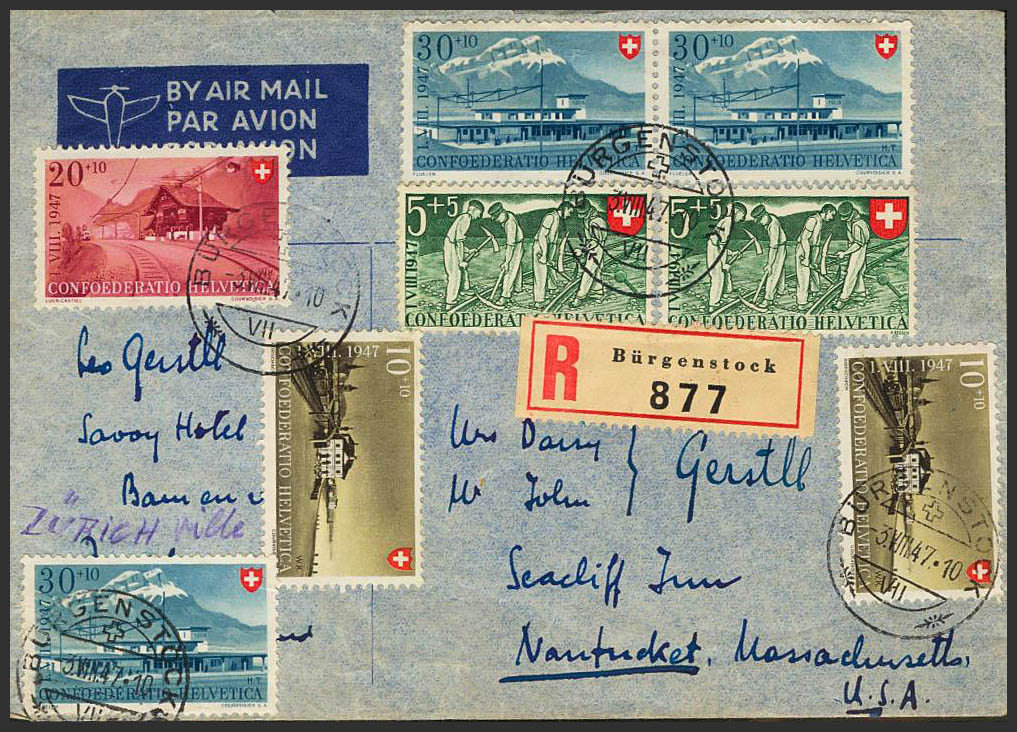 BY AIR MAIL
PAR AVION
30+10
1.VIII.1947
CONFOEDERATIO HELVETICA
FLUELEN
H.T.
COURVOISIER S.A.
30+10
1.VIII.1947
CONFOEDERATIO HELVETICA
FLUELEN
H.T.
COURVOISIER S.A.
20+10
1.VIII.1947
CONFOEDERATIO HELVETICA
COURVOISIER S.A.
5+5
1.VIII.1947
CONFOEDERATIO HELVETICA
5+5
CONFOEDERATIO HELVETICA
BÜRGENSTOCK
3.VIII.47
VII
BÜRGENSTOCK
3.VIII.47·10
VII
R
Bürgenstock
877
Leo Gerstll
Savoy Hotel
ZÜRICH ville
10+10
1.VIII.1947
CONFOEDERATIO HELVETICA
10+10
1.VIII.1947
CONFOEDERATIO HELVETICA
Mrs Daisy
Mr John
Gerstll
Seacliff Inn
Nantucket, Massachusetts,
U.S.A.
BÜRGENSTOCK
3.VIII.47·10
VII
30+10
1947
CONFOEDERATIO HELVETICA
H.T.
COURVOISIER S.A.
BÜRGENSTOCK
3.VIII.47·10
VII